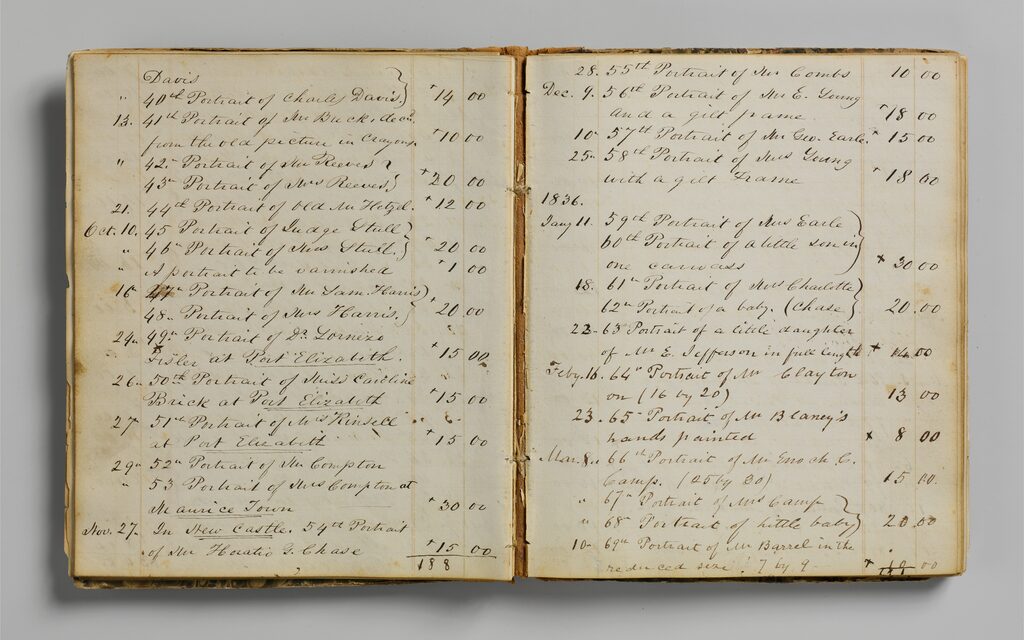 Davis
" 40th Portrait of Charles Davis. 14 00
13. 41st Portrait of Mr Buck, decd
from the old picture in Crayons 10 00
" 42n Portrait of Mr Reeves
43n Portrait of Mrs Reeves. 20 00
21. 44th Portrait of old Mr Hetzel. 12 00
Oct. 10. 45 Portrait of Judge Stull
" 46n Portrait of Mrs Stull, 20 00
" A portrait to be varnished 1 00
16n 47n Portrait of Mr Sam. Harris
48n Portrait of Mrs Harris. 20 00
24n 49n Portrait of Dr Lorenzo
Fisler at Port Elizabeth. 15 00
26n 50th Portrait of Miss Caroline
Brick at Port Elizabeth 15 00
27 51st Portrait of
at Port Elizabeth 15 00
29n 52n Portrait of Mr Compton
" 53 Portrait of Mrs Compton at
Maurice Town 30 00
Nov. 27. In New Castle. 54th Portrait
of Mr Horatio G. Chase 15 00
188
28. 55th Portrait of Mr Combs 10 00
Dec. 9. 56th Portrait of Mr E. Young
and a gilt frame 18 00
10n 57th Portrait of Mr Geo. Earle. 15 00
25n 58th Portrait of Mrs Young
with a gilt Frame 18 00
1836.
Jany 11. 59th Portrait of Mrs Earle
60th Portrait of a little son in
one canvass 30 00
18. 61st Portrait of Mrs Charlotte
62n Portrait of a baby. (Chase 20.00
23n 63 Portrait of a little daughter
of Mr E. Jefferson in full length 14.00
Feby. 16. 64n Portrait of Mr Clayton
on (16 by 20) 13 00
23. 65 Portrait of Mr Blaney's
hands painted 8 00
Mar. 8n 66th Portrait of Mr Enoch C.
Camp. (25 by 30) 15 00.
" 67n Portrait of Mrs Camp
" 68n Portrait of little baby 20.00
10n 69n Portrait of Mr Barrel in the
reduced size 7 by 9 10 00